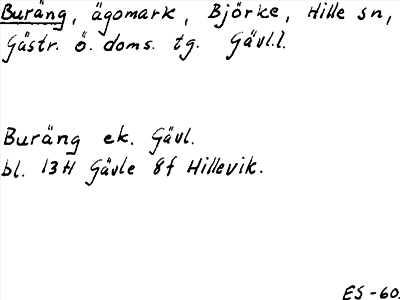 Buräng, ägomark, Björke, Hille sn,
Gästr. ö. doms. tg. Gävl.l.
Buräng ek. Gävl.
bl. 13H Gävle 8f Hillevik.
ES-60.